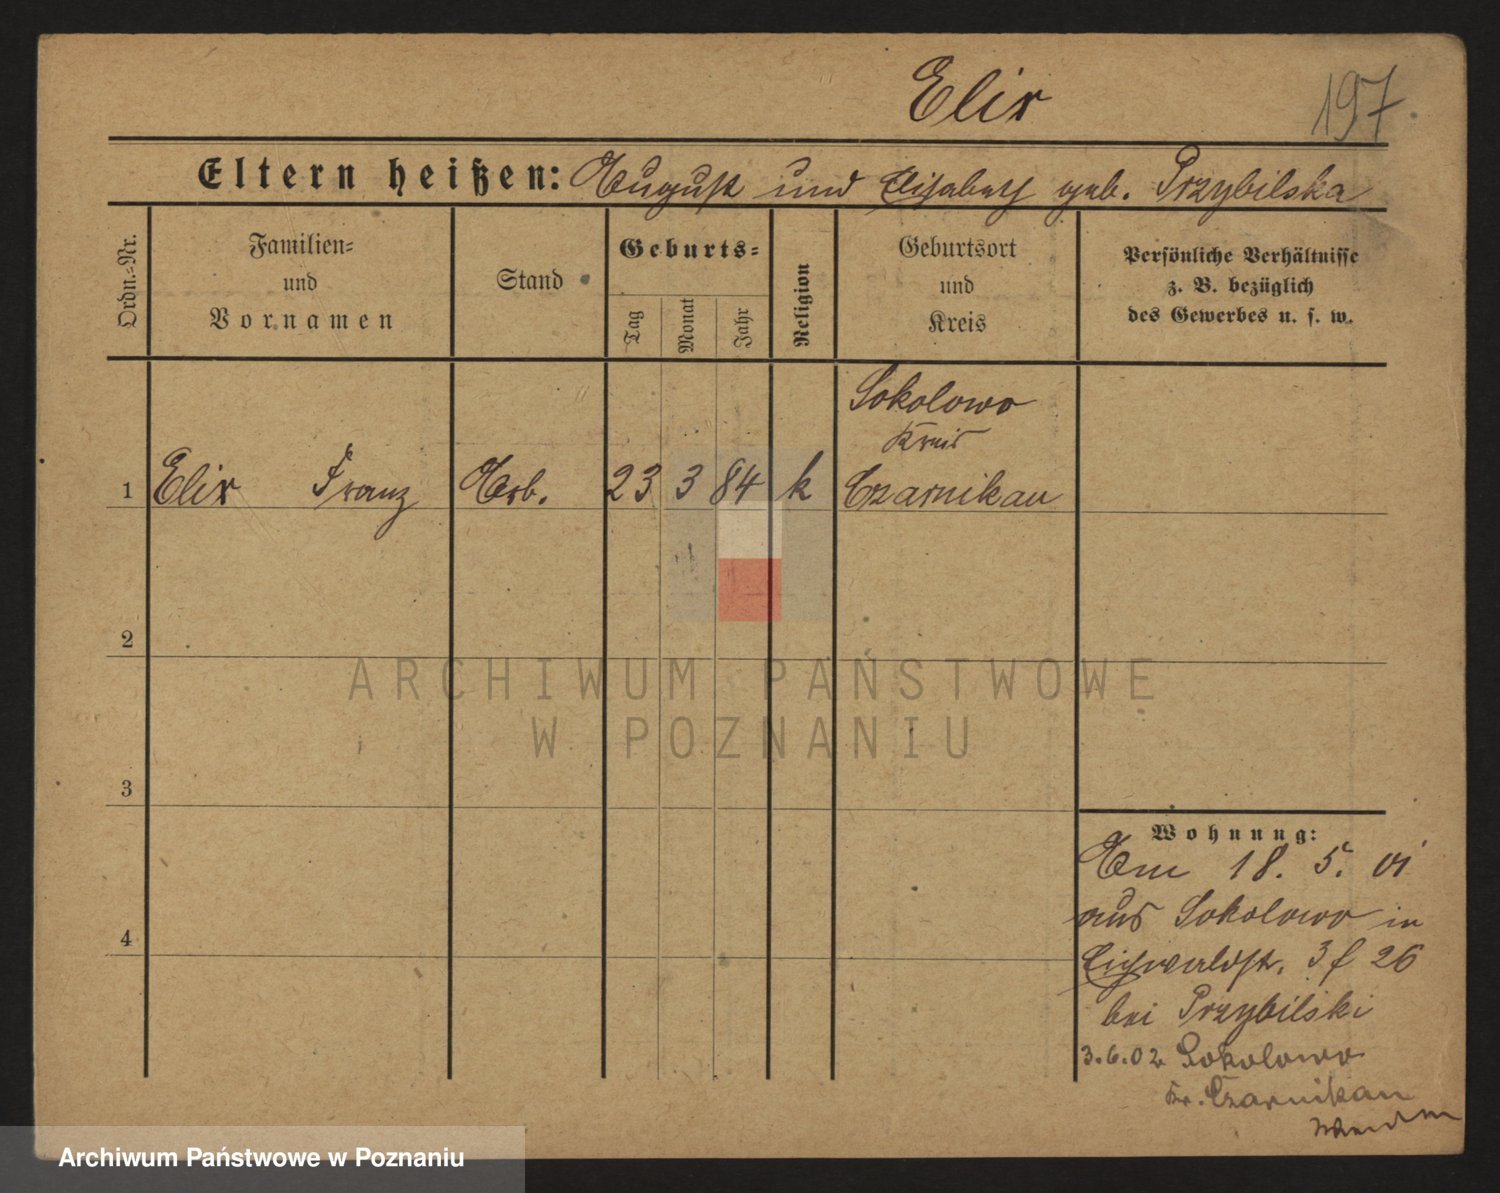 Elix
197
Eltern heißen: August und Elisabeth geb. Przybilska
Ordn.=Nr.
Familien=
und
Vornamen
Stand
Geburts=
Tag
Monat
Jahr
Religion
Geburtsort
und
Kreis
Persönliche Verhältnisse
z. B. bezüglich
des Gewerbes u. s. w.
1 Elix Franz Arb. 23 3 84 k Sokolowo
Kreis
Czarnikau
2
3
4
ARCHIWUM PAŃSTWOWE
W POZNANIU
Wohnung:
Am 18. 5. 01
aus Sokolowo in
Eichwaldstr. 3 f 26
bei Przybilski
3.6.02 Sokolowo
Kr. Czarnikau
Archiwum Państwowe w Poznaniu